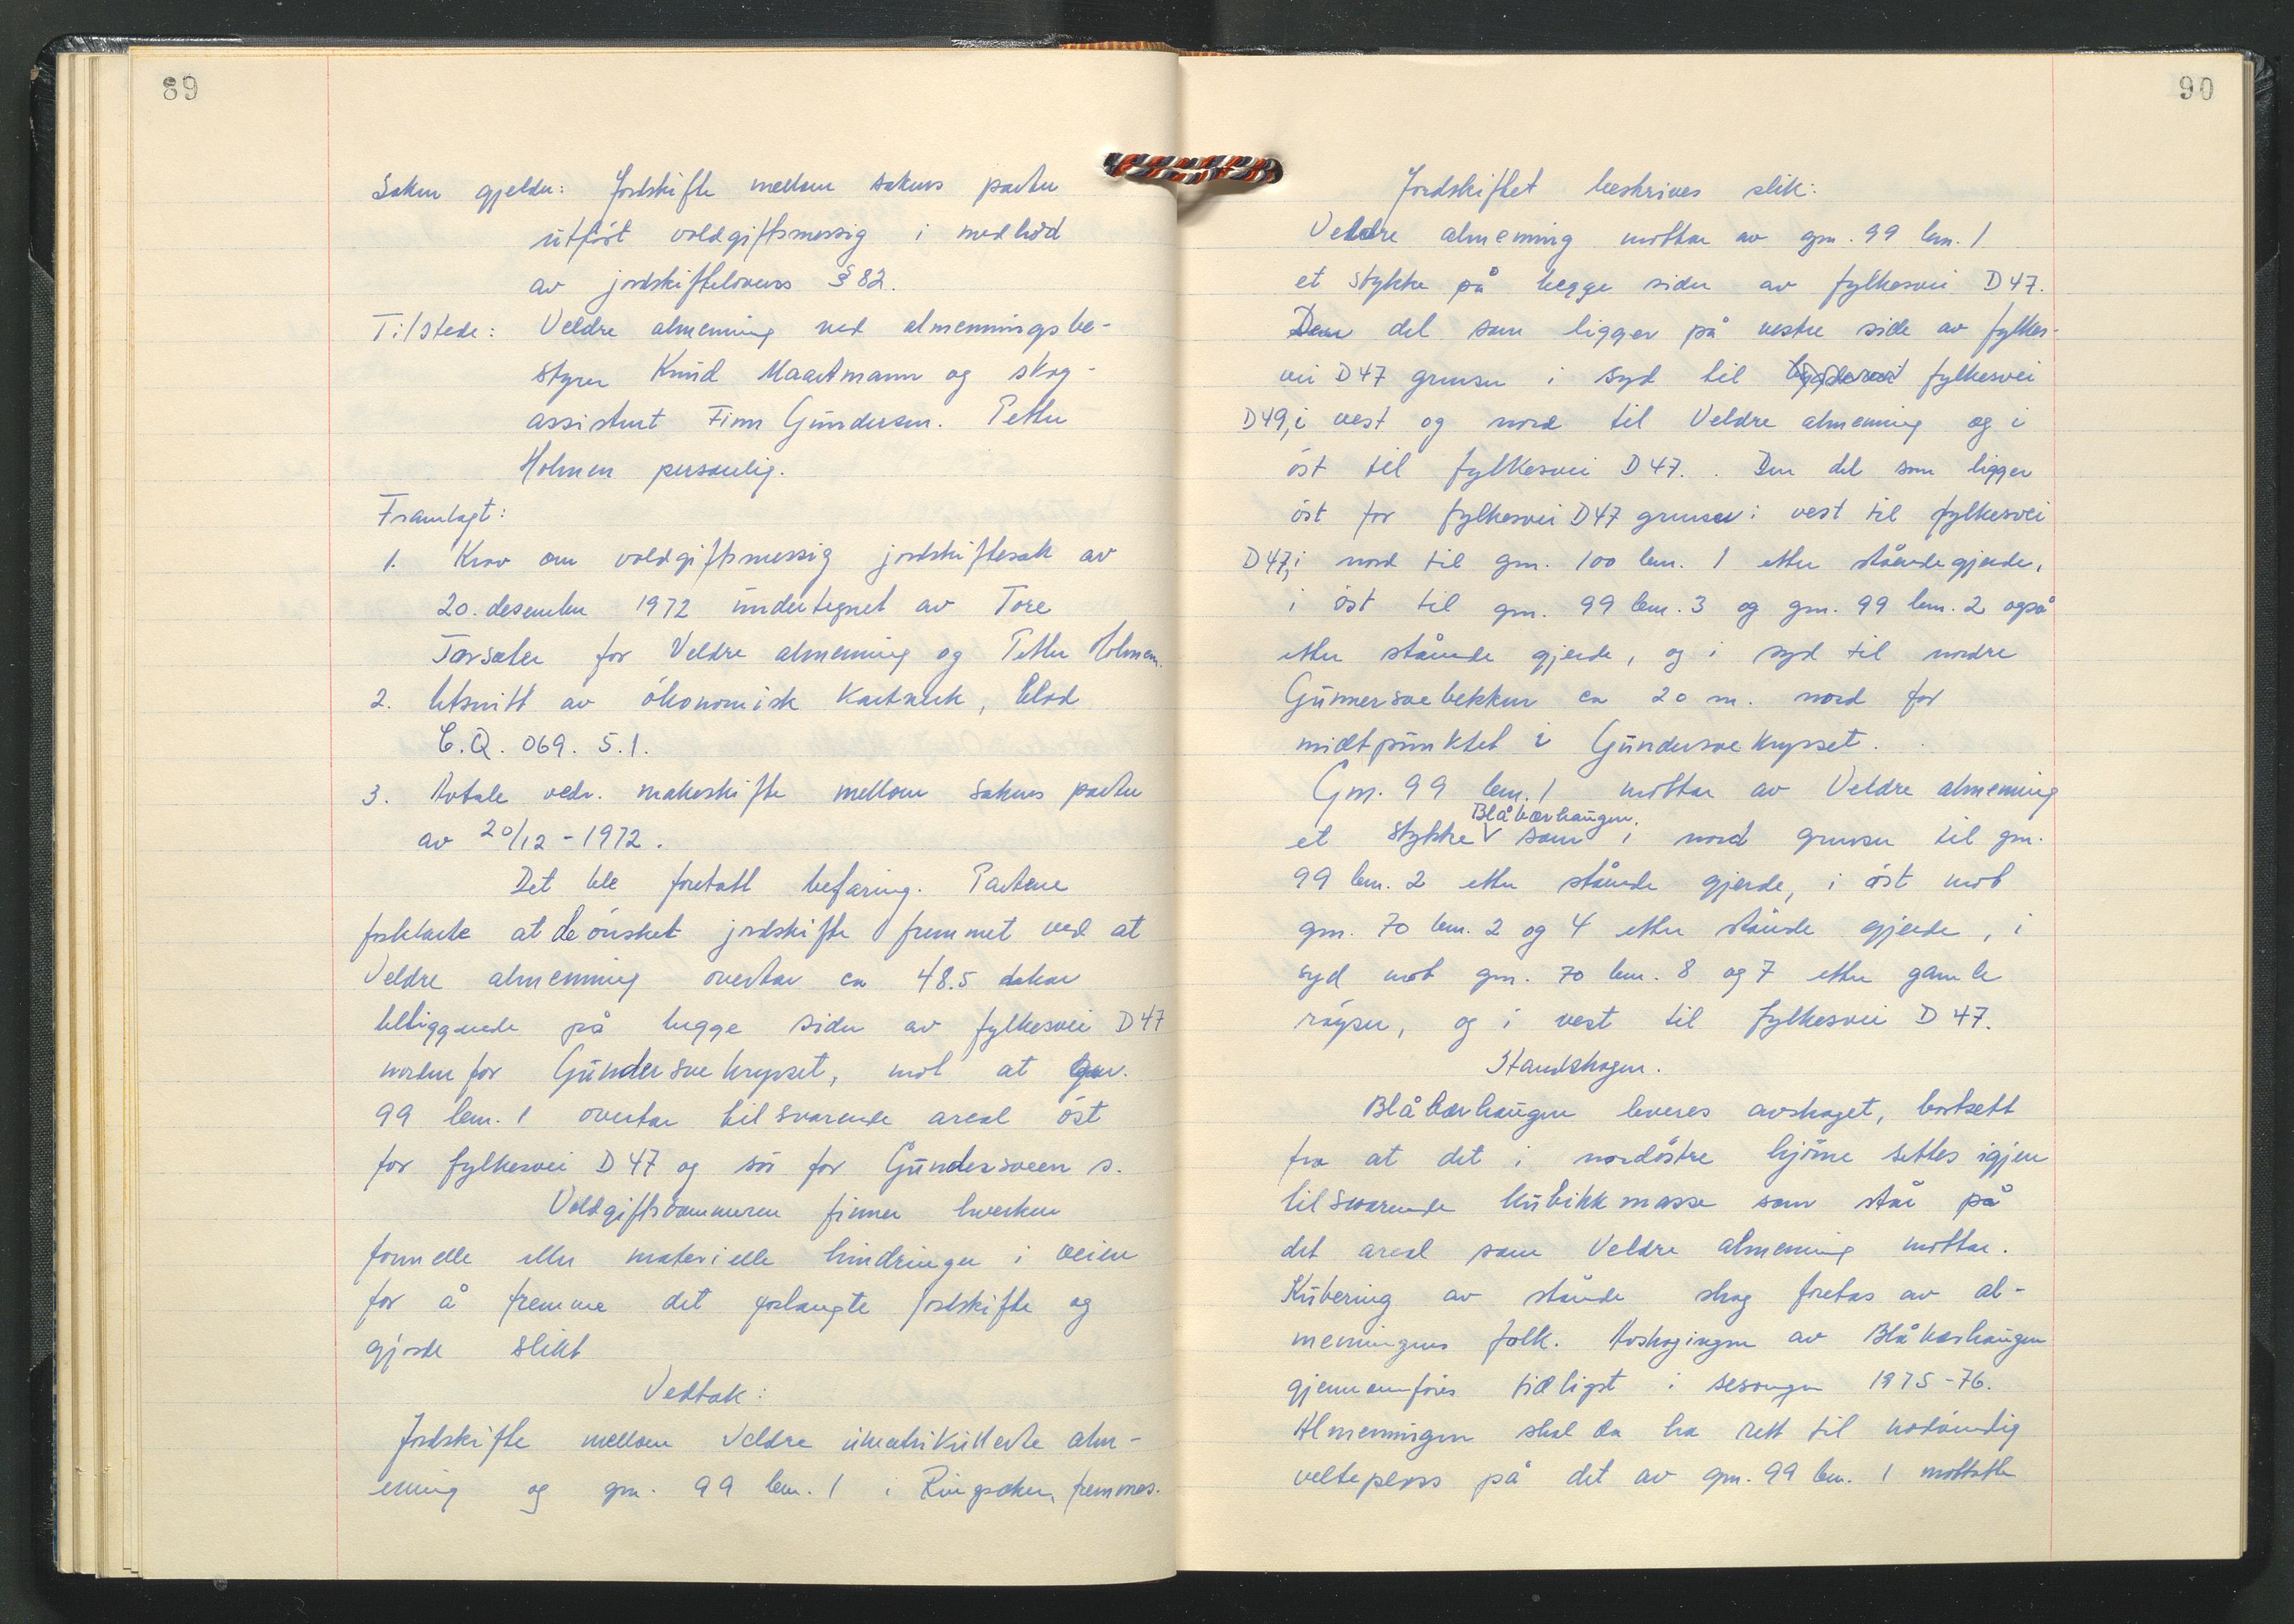 89
Saken gjelder: Jordskifte mellom sakens parter
utført voldgiftsmessig i medhold
av jordskiftelovens § 82.
Tilstede: Veldre almenning ved almenningsbe-
styrer Knud Maartmann og skog-
assistent Finn Gundersen. Petter
Holmen personlig.
Framlagt:
1. Krav om voldgiftsmessig jordskiftesak av
20. desember 1972 undertegnet av Tore
Torsæter for Veldre almenning og Petter Holmen.
2. Utsnitt av økonomisk kartverk, blad
C.Q. 069. 5.1.
3. Avtale vedr. makeskifte mellom sakens parter
av 20/12 - 1972.
Det ble foretatt befaring. Partene
forklarte at de ønsket jordskifte fremmet ved at
Veldre almenning overtar ca 48.5 dekar
beliggende på begge sider av fylkesvei D 47
norden for Gundersvekrysset, mot at gnr.
99 bnr. 1 overtar tilsvarende areal øst
for fylkesvei D 47 og sør for Gundersveen s.
Voldgiftsdommeren finner hverken
formelle eller materielle hindringer i veien
for å fremme det forlangte jordskifte og
gjorde slikt
Vedtak:
Jordskifte mellom Veldre umatrikulerte alm-
enning og gnr. 99 bnr. 1 i Ringsaker, fremmes.
90
Jordskiftet beskrives slik:
Veldre almenning mottar av gnr. 99 bnr. 1
et stykke på begge sider av fylkesvei D 47.
Den del som ligger på vestre side av fylkes-
vei D 47 grenser i syd til fylkesvei
D49, i vest og nord til Veldre almenning og i
øst til fylkesvei D 47. Den del som ligger
øst for fylkesvei D47 grenser i vest til fylkesvei
D47, i nord til gnr. 100 bnr. 1 etter stående gjerde,
i øst til gnr. 99 bnr. 3 og gnr. 99 bnr. 2 også
etter stående gjerde, og i syd til nordre
Gunnersvebekken ca 20 m. nord for
midtpunktet i Gundersvekrysset.
Gnr. 99 bnr. 1 mottar av Veldre almenning
Blåbærhaugen.
et stykke V som i nord grenser til gnr.
99 bnr. 2 etter stående gjerde, i øst mot
gnr. 70 bnr. 2 og 4 etter stående gjerde, i
syd mot gnr. 70 bnr. 8 og 7 etter gamle
røyser, og i vest til fylkesvei D 47.
Standskogen.
Blåbærhaugen leveres avskoget, bortsett
fra at det i nordøstre hjørne settes igjen
tilsvarende kubikkmasse som står på
det areal som Veldre almenning mottar.
Kubering av stående skog foretas av al-
menningens folk. Avskogingen av Blåbærhaugen
gjennomføres tidligst i sesongen 1975-76.
Almenningen skal da ha rett til nødvendig
velteplass på det av gnr. 99 bnr. 1 mottatte